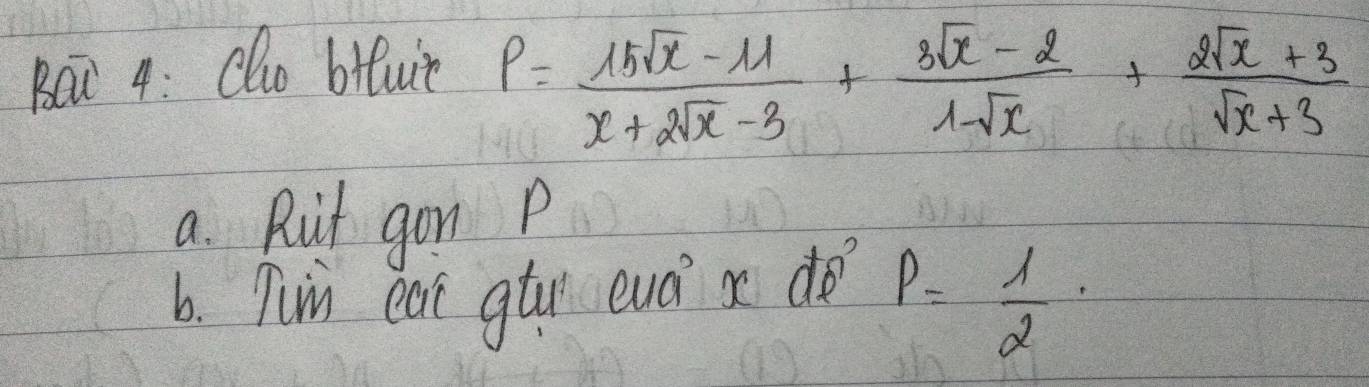 Bài 4: Cho bthức P = \frac{15\sqrt{x} - 11}{x + 2\sqrt{x} - 3} + \frac{3\sqrt{x} - 2}{1 - \sqrt{x}} + \frac{2\sqrt{x} + 3}{\sqrt{x} + 3}
a. Rút gọn P
b. Tìm các gtrị của x để P = \frac{1}{2}.